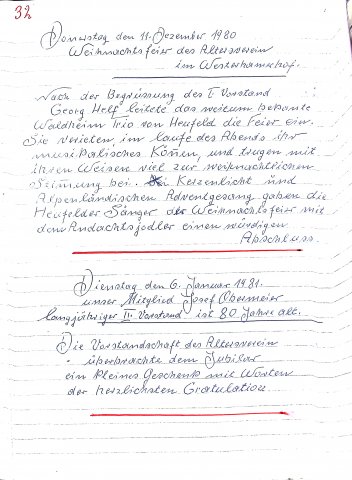 32
Donnerstag den 11. Dezember 1980
Weihnachtsfeier des Altersverein
im Westerhamerhof.
Nach der Begrüssung des I Vorstand
Georg Helf leitete das weitum bekante
Waldheim Trio von Heufeld die Feier ein.
Sie verieten im laufe des Abends ihr
musikalisches Können, und trugen mit
ihren Weisen viel zur weihnachtlichen
Stimmung bei. Kerzenlicht und
Alpenländischen Adventgesang gaben die
Heufelder Sänger der Weihnachtsfeier mit
dem Andachtsjodler einen würdigen
Abschluss.
Dienstag den 6. Januar 1981.
unser Mitglied Josef Obermeier
langjähriger III Vorstand ist 80 Jahre alt.
Die Vorstandschaft des Altersverein
überbrachte dem Jubilar
ein kleines Geschenk mit Worten
der herzlichsten Gratulation.